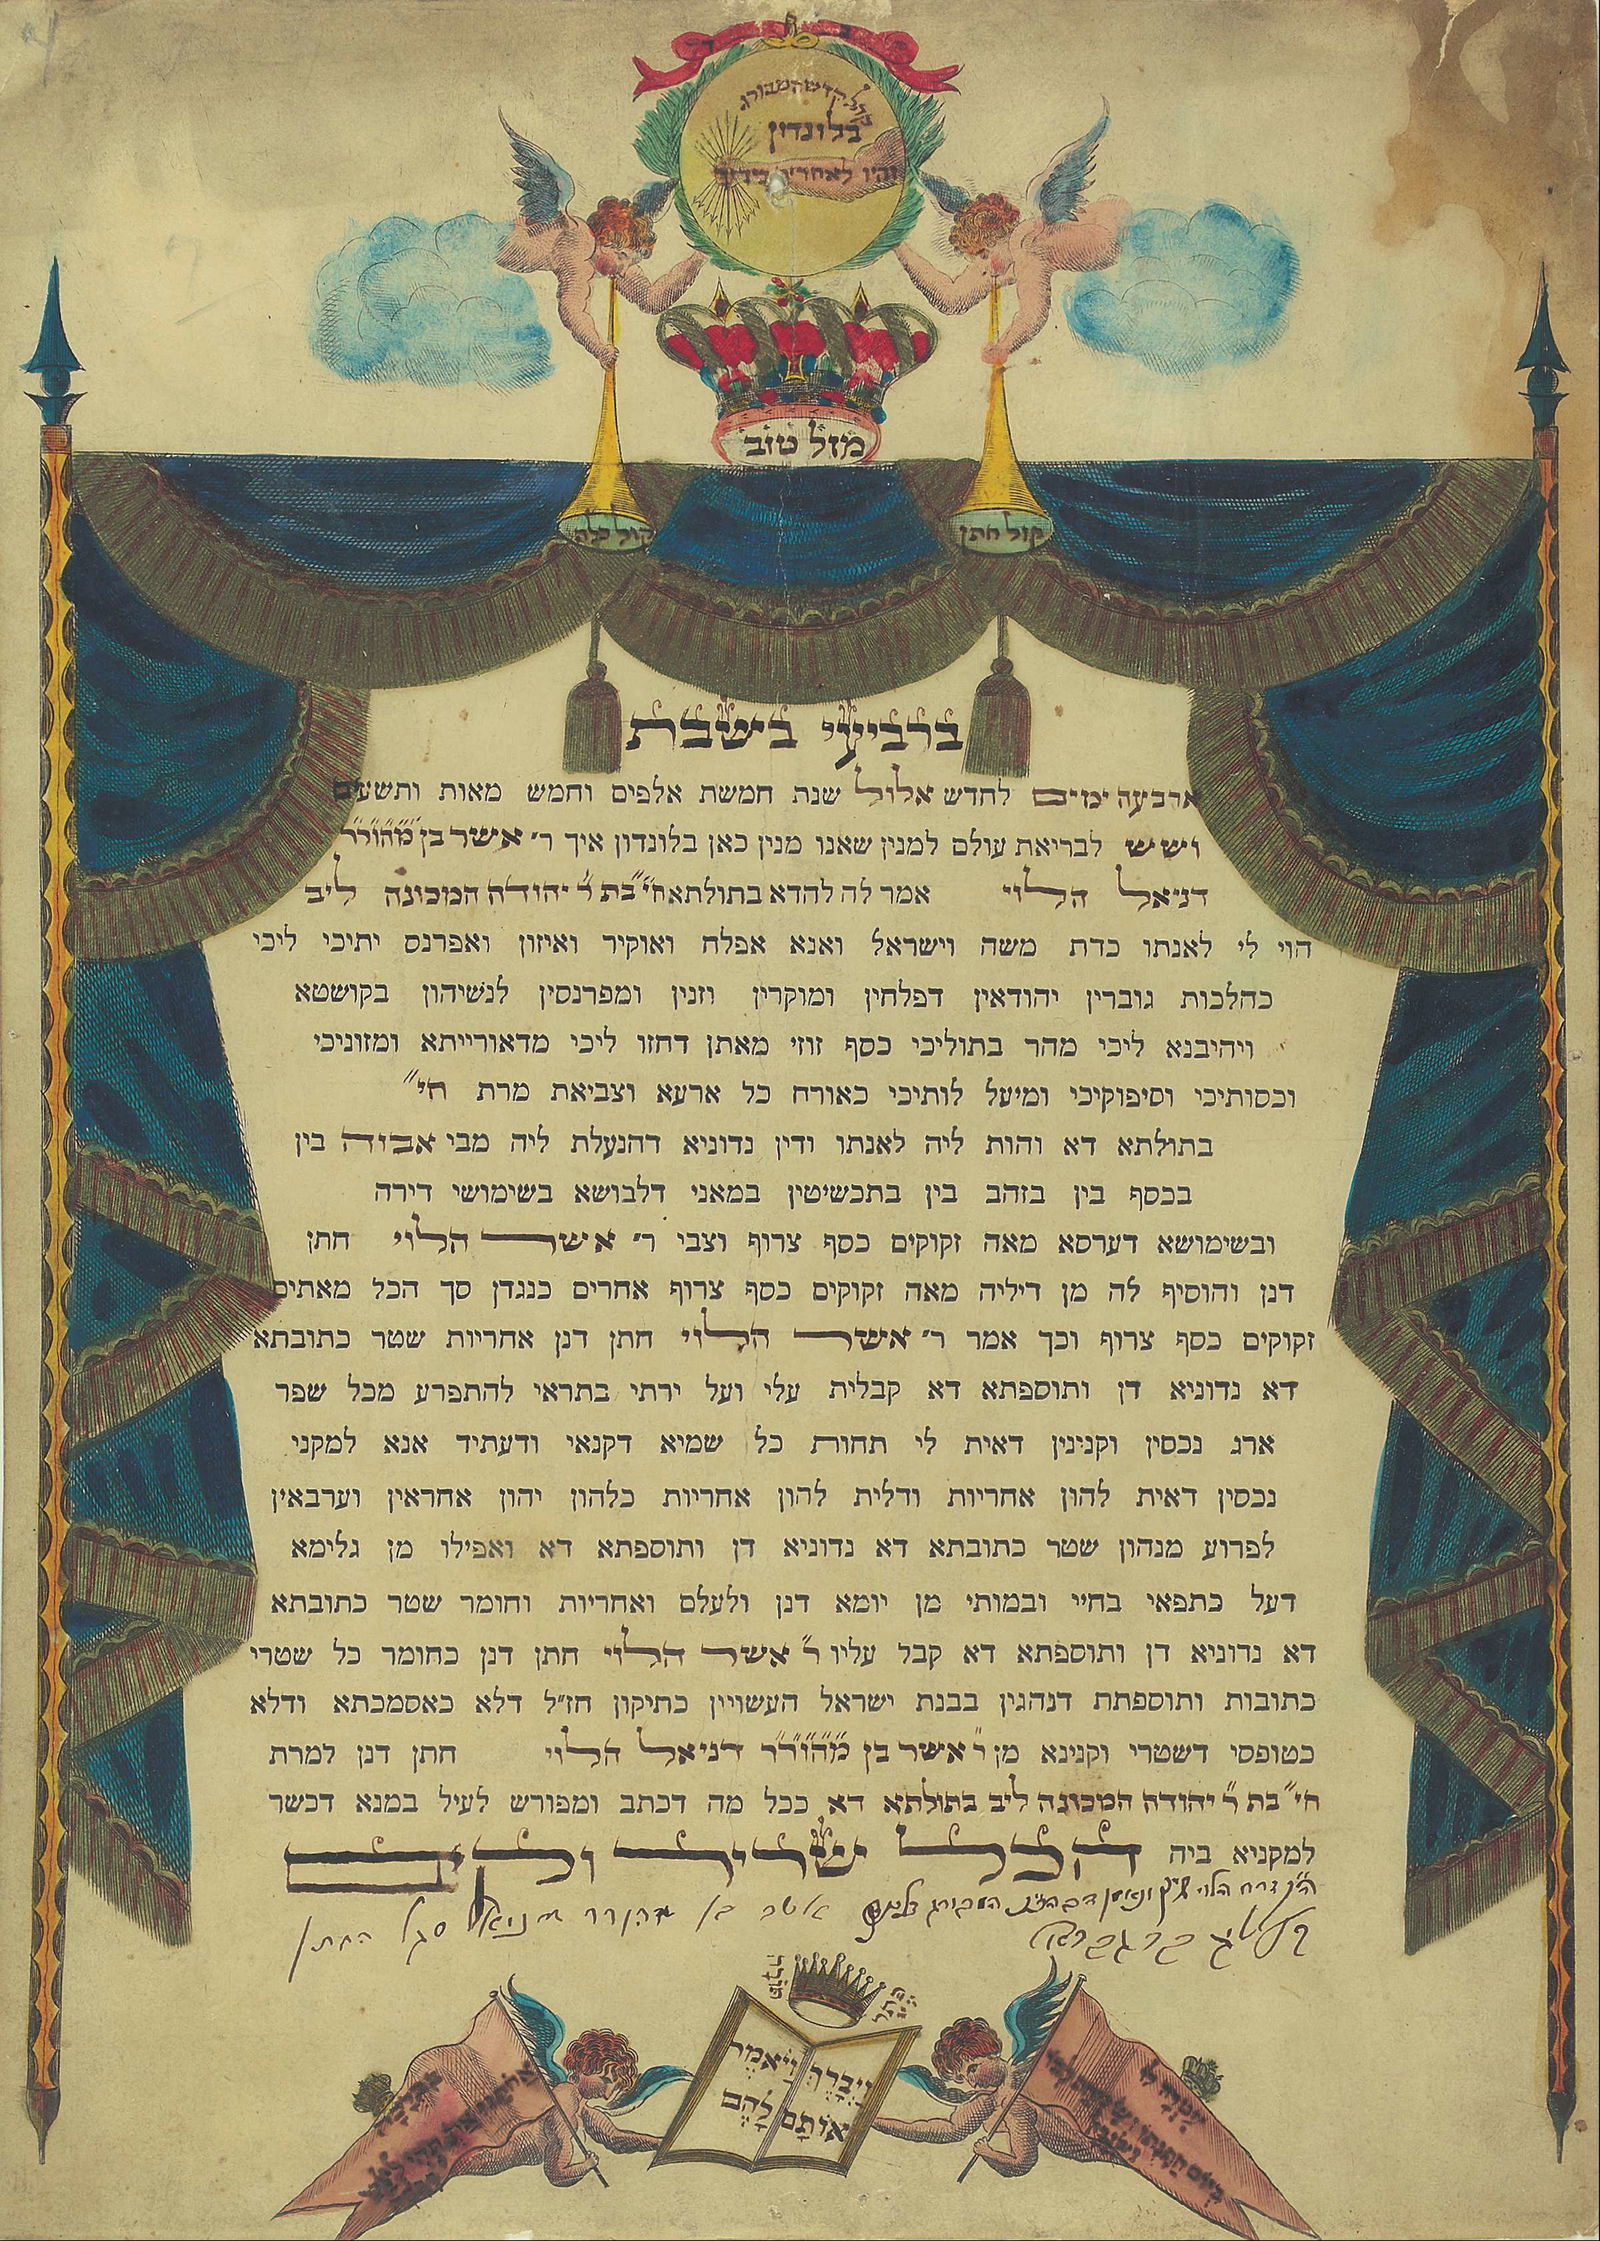 בלונדון
מזל טוב
קול חתן
קול כלה
ברביעי בשבת
ארבעה ימים לחדש אלול שנת חמשת אלפים וחמש מאות ותשעים
ושש לבריאת עולם למנין שאנו מנין כאן בלונדון איך ר׳ אשר בן מהורר
דניאל הלוי אמר לה להדא בתולתא חי״ בת ר׳ יהודה המכונה ליב
הוי לי לאנתו כדת משה וישראל ואנא אפלח ואוקיר ואיזון ואפרנס יתיכי ליכי
כהלכות גוברין יהודאין דפלחין ומוקרין וזנין ומפרנסין לנשיהון בקושטא
ויהיבנא ליכי מהר בתוליכי כסף זוזי מאתן דחזו ליכי מדאורייתא ומזוניכי
וכסותיכי וסיפוקיכי ומיעל לותיכי כאורח כל ארעא וצביאת מרת חי״
בתולתא דא והות ליה לאנתו ודין נדוניא דהנעלת ליה מבי אבוה בין
בכסף בין בזהב בין בתכשיטין במאני דלבושא בשימושי דירה
ובשימושא דערסא מאה זקוקים כסף צרוף וצבי ר׳ אשר הלוי חתן
דנן והוסיף לה מן דיליה מאה זקוקים כסף צרוף אחרים כנגדן סך הכל מאתים
זקוקים כסף צרוף וכך אמר ר׳ אשר הלוי חתן דנן אחריות שטר כתובתא
דא נדוניא דן ותוספתא דא קבלית עלי ועל ירתי בתראי להתפרע מכל שפר
ארג נכסין וקנינין דאית לי תחות כל שמיא דקנאי ודעתיד אנא למקני
נכסין דאית להון אחריות ודלית להון אחריות כלהון יהון אחראין וערבאין
לפרוע מנהון שטר כתובתא דא נדוניא דן ותוספתא דא ואפילו מן גלימא
דעל כתפאי בחיי ובמותי מן יומא דנן ולעלם ואחריות וחומר שטר כתובתא
דא נדוניא דן ותוספתא דא קבל עליו ר׳ אשר הלוי חתן דנן כחומר כל שטרי
כתובות ותוספתת דנהגין בבנת ישראל העשויין כתיקון חז״ל דלא כאסמכתא ודלא
כטופסי דשטרי וקנינא מן ר׳ אשר בן מהורר דניאל הלוי חתן דנן למרת
חי״ בת ר׳ יהודה המכונה ליב בתולתא דא ככל מה דכתב ומפורש לעיל במנא דכשר
למקניא ביה הכל שריר וקים
אשר בן מהורר דניאל סגל החתן
וַיְבָרֶךְ וַיֹּאמֶר
אוֹתָם לָהֶם